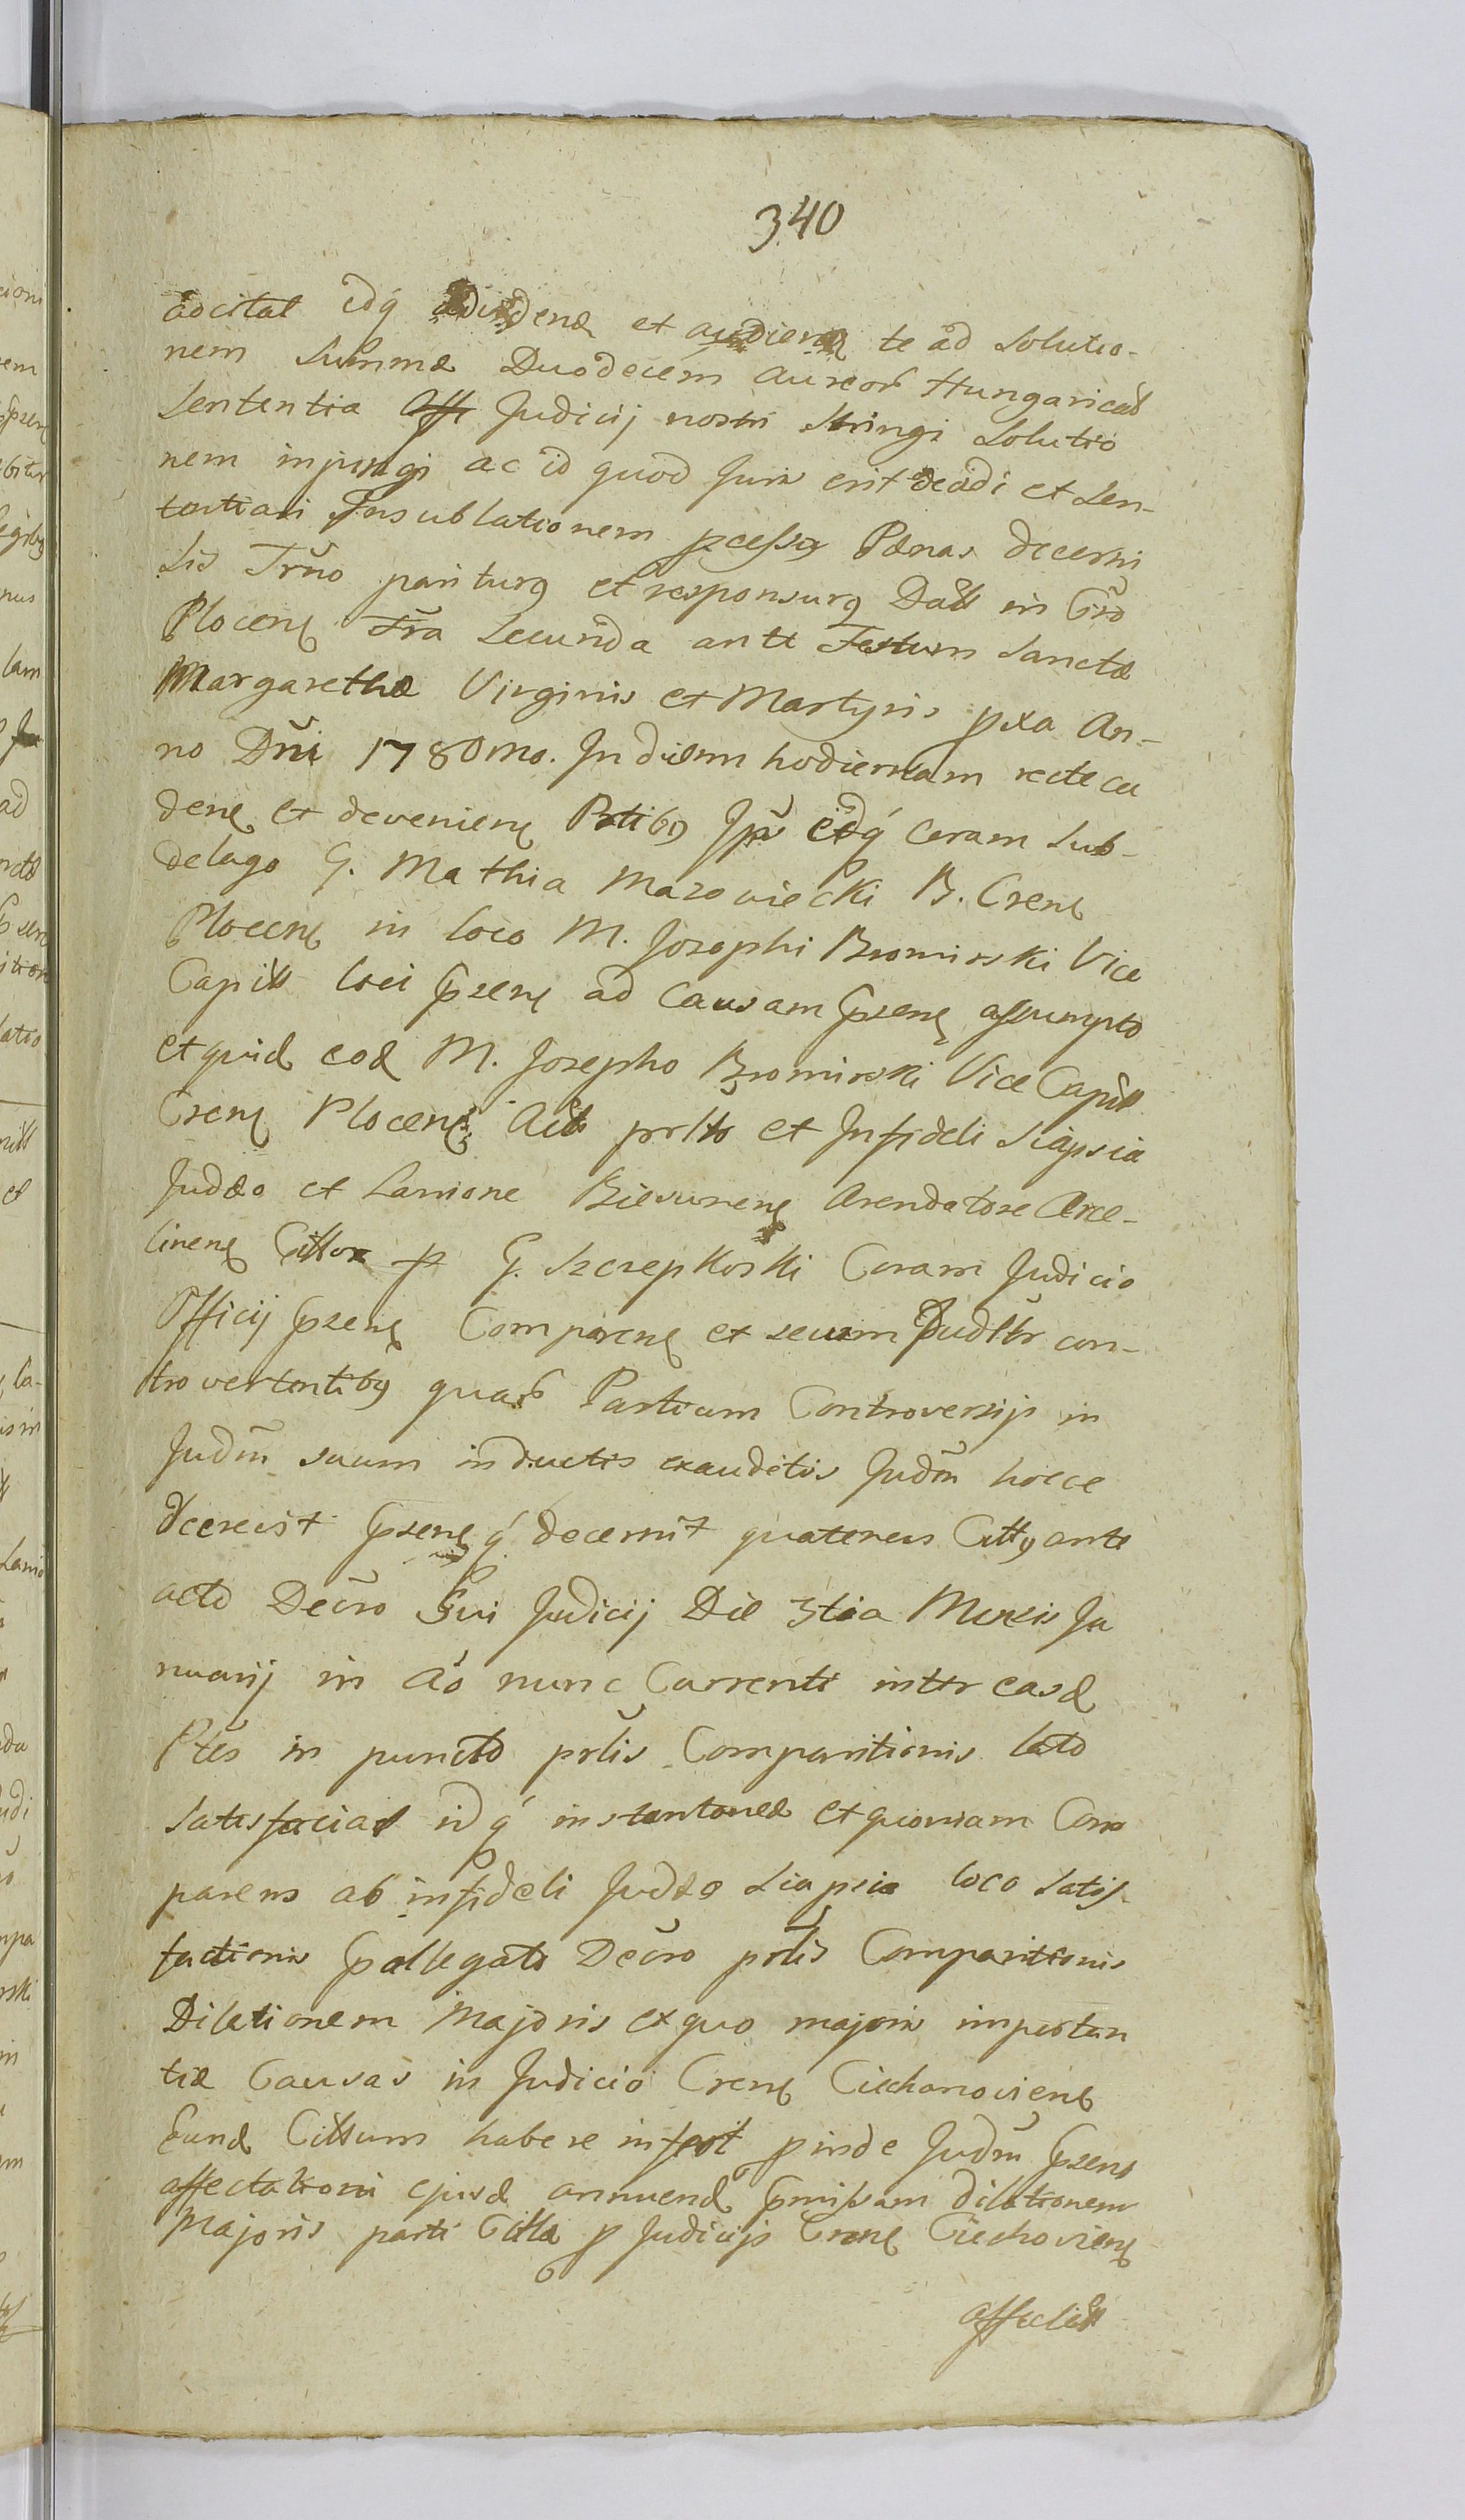 340
adcitat idq́ et te ad Solutio-
nem Summæ Duodecem Aureor̃ Hungaricał
Sententia Judicij nostri Stringi Solutio
nem injungi ac id quod Juris erit decidi et Sen-
tentiari Pænas decerni
Sis Trm̃o pariturq et responsurq Datt in C̃ro
Plocenę Fr̃a Secunda ante Festum Sanctæ
Margarethæ Virginis et Martyris pxa An-
no Dñi 1780mo. In diem hodiernam recte ca
denę et devenienę Ptibq idq́ coram Sub-
delago G. Mathia Mazowiecki B. Crenę
Plocenę in loco M. Josephi Bromirski Vice
Capitt loci pzenę ad Causam pzenę assumpto
et quid eod M. Josepho Bromirski Vice Capitt
Crenę Plocenę Act prlto et Infideli Siapsia
Judæo et Lanione Biezunenę Arendatore Arce-
linenę Citto p G. Szczepkoski Coram Judicio
Officij pzenę Comparenę et secum Judltr con-
trovertentibq quar̃ Partium Controversijs in
Judm̃ suum inductis exauditis Judm̃ hocce
decrevit pzenęq́ decernit quatenus Cittq ante
acto Decr̃o Sui Judicij Die 3tia Mensis Ja
nuarij in Aõ nunc Currenti inter easd
Ptes in puncto prlis Comparitionis lato
Satisfaciat idq́ instantanee et quoniam Com
parens ab infideli Judæo Siapsia loco Satis
factionis pallegato Decr̃o prlis Comparitionis
Dilationem Majoris ex quo majoris importan
tiæ Causas in Judicio Crenę Ciechanovienę
Eund Cittum habere infert pinde Judm̃ pzenę
affectationi ejusd annuend pmissam dilationem
Majoris parti Cittæ p Judicijs Crenę Ciechovienę